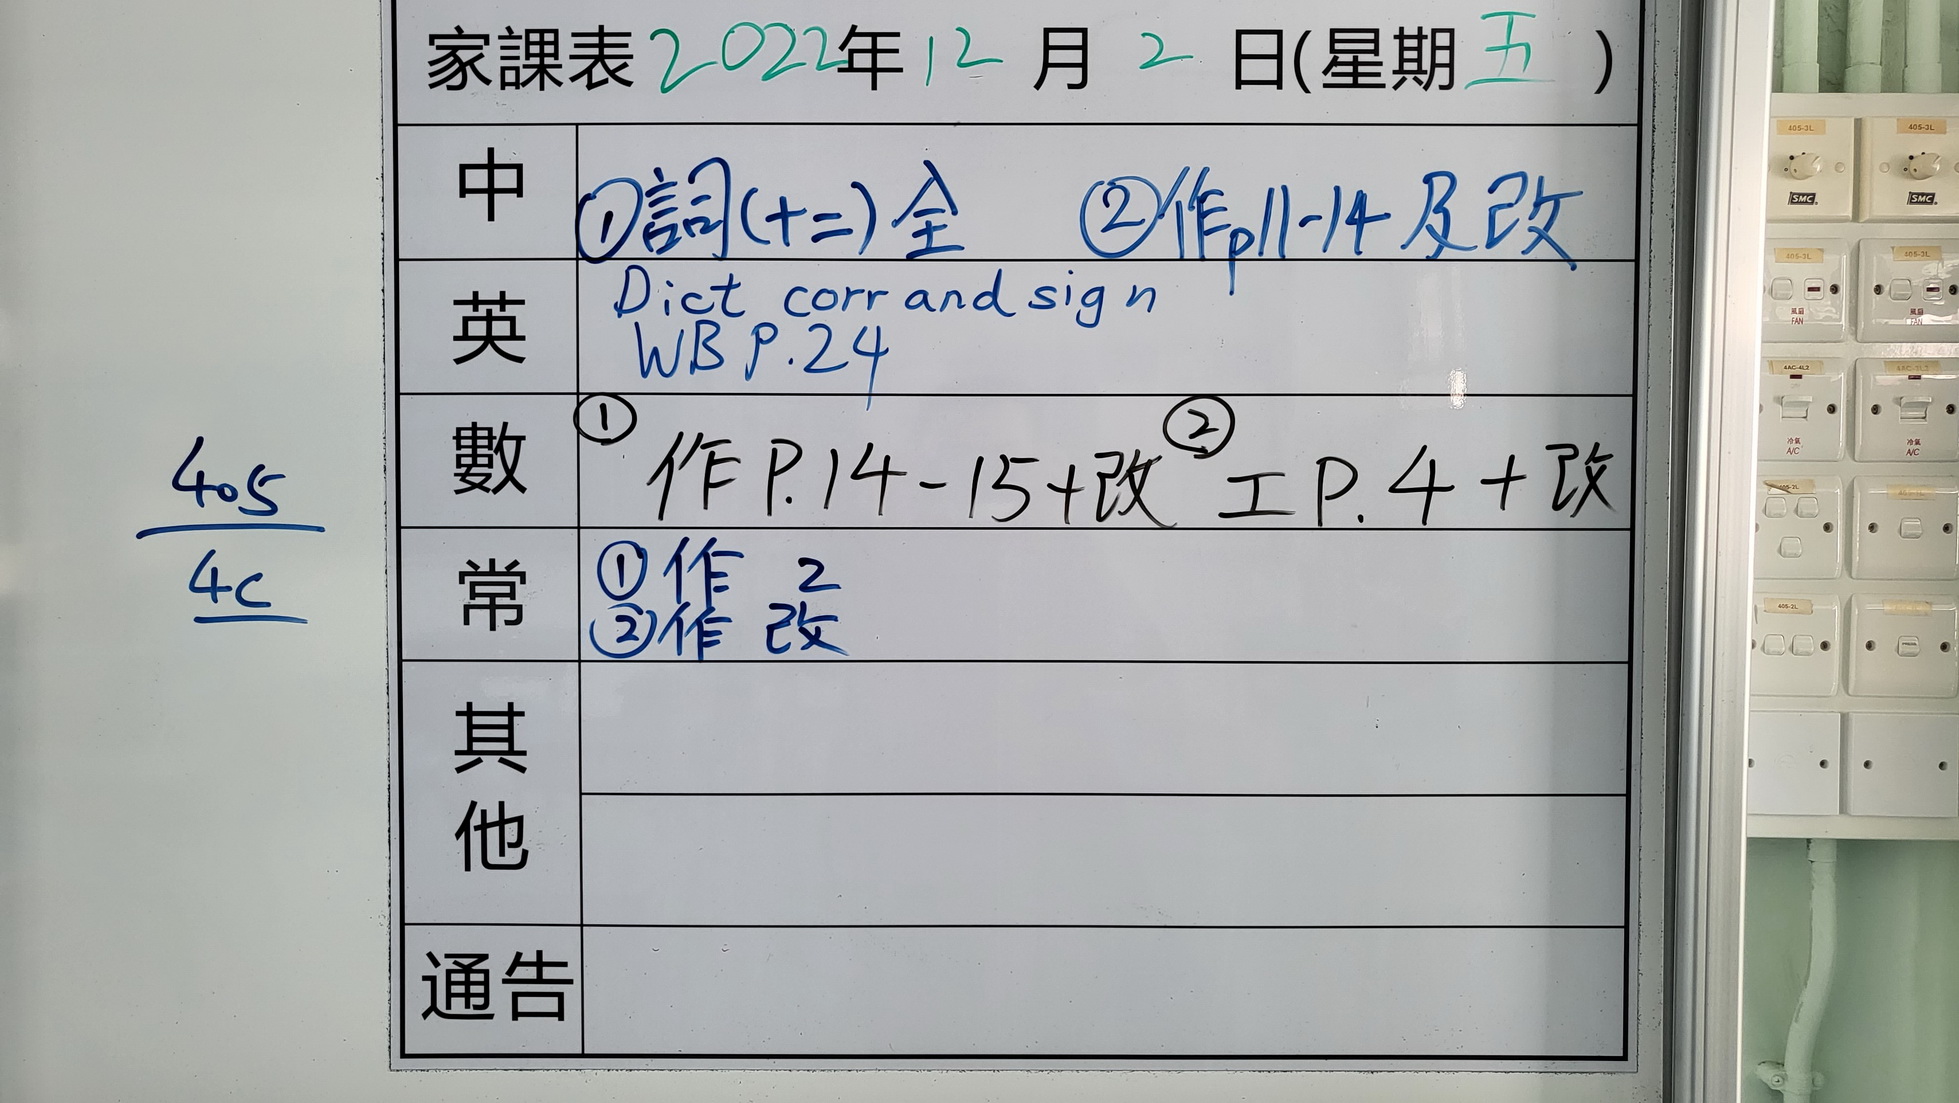 家課表 2022年 12 月 2 日(星期 五 )
中 ①詞(十二)全 ②作p11-14 及改
英 Dict corr and sign
WB P.24
數 ① 作 P.14-15+改 ② 工 P.4 + 改
常 ①作 2
②作 改
其他
通告
405
4C
405-3L 405-3L
SMC SMC
405-3L 405-3L
風扇 風扇
FAN FAN
4AC-4L2
冷氣 冷氣
A/C A/C
405-2L